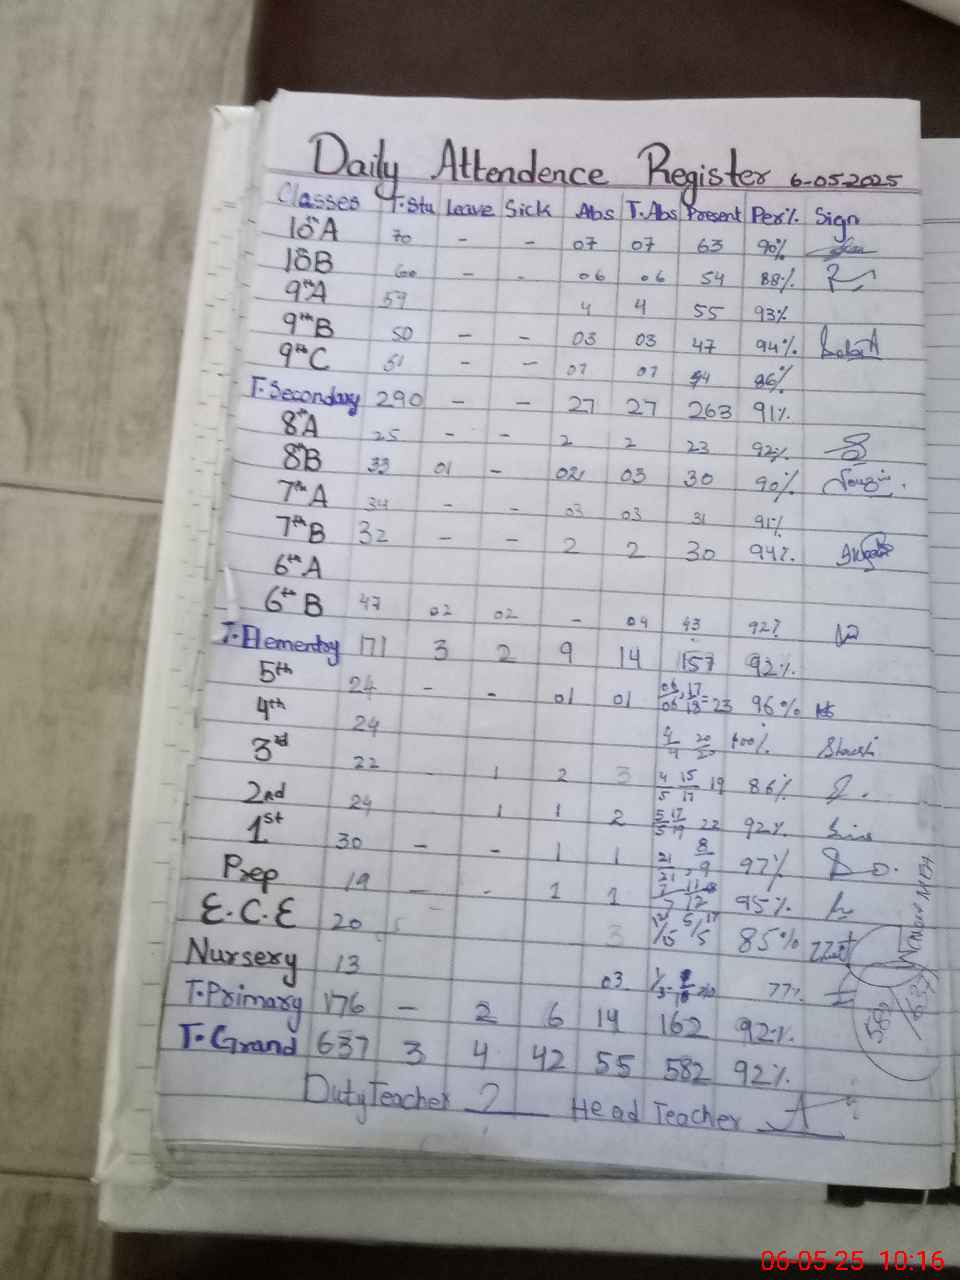 Daily Attendence Register 6-05-2025
Classes T.Stu Leave Sick Abs T.Abs Present Per% Sign
10th A 70 - - 07 07 63 90%
10th B 60 - - 06 06 54 88%
9th A 59 4 4 55 93%
9th B 50 - - 03 03 47 94%
9th C 51 - - 07 07 44 86%
T.Secondary 290 - - 27 27 263 91%
8th A 25 - - 2 2 23 92%
8th B 33 01 - 02 03 30 90%
7th A 34 - - 03 03 31 91%
7th B 32 - - 2 2 30 94%
6th A
6th B 47 02 02 - 04 43 92%
T.Elementry 171 3 2 9 14 157 92%
5th 24 - - 01 01 06/06, 17/18=23 96%
4th 24 4/4 20/20 100%
3rd 22 - 1 2 3 4/5 15/17 19 86%
2nd 24 1 1 2 5/5 17/19 22 92%
1st 30 - - 1 1 21/21, 8/9 97%
Prep 19 - - 1 1 7/7 11/12 18 95%
E.C.E 20 3 12/15 5/5 17 85%
Nursery 13 03 77%
T.Primary 176 - 2 6 14 162 92%
T.Grand 637 3 4 42 55 582 92%
582/637
Duty Teacher Head Teacher
06-05-25 10:16